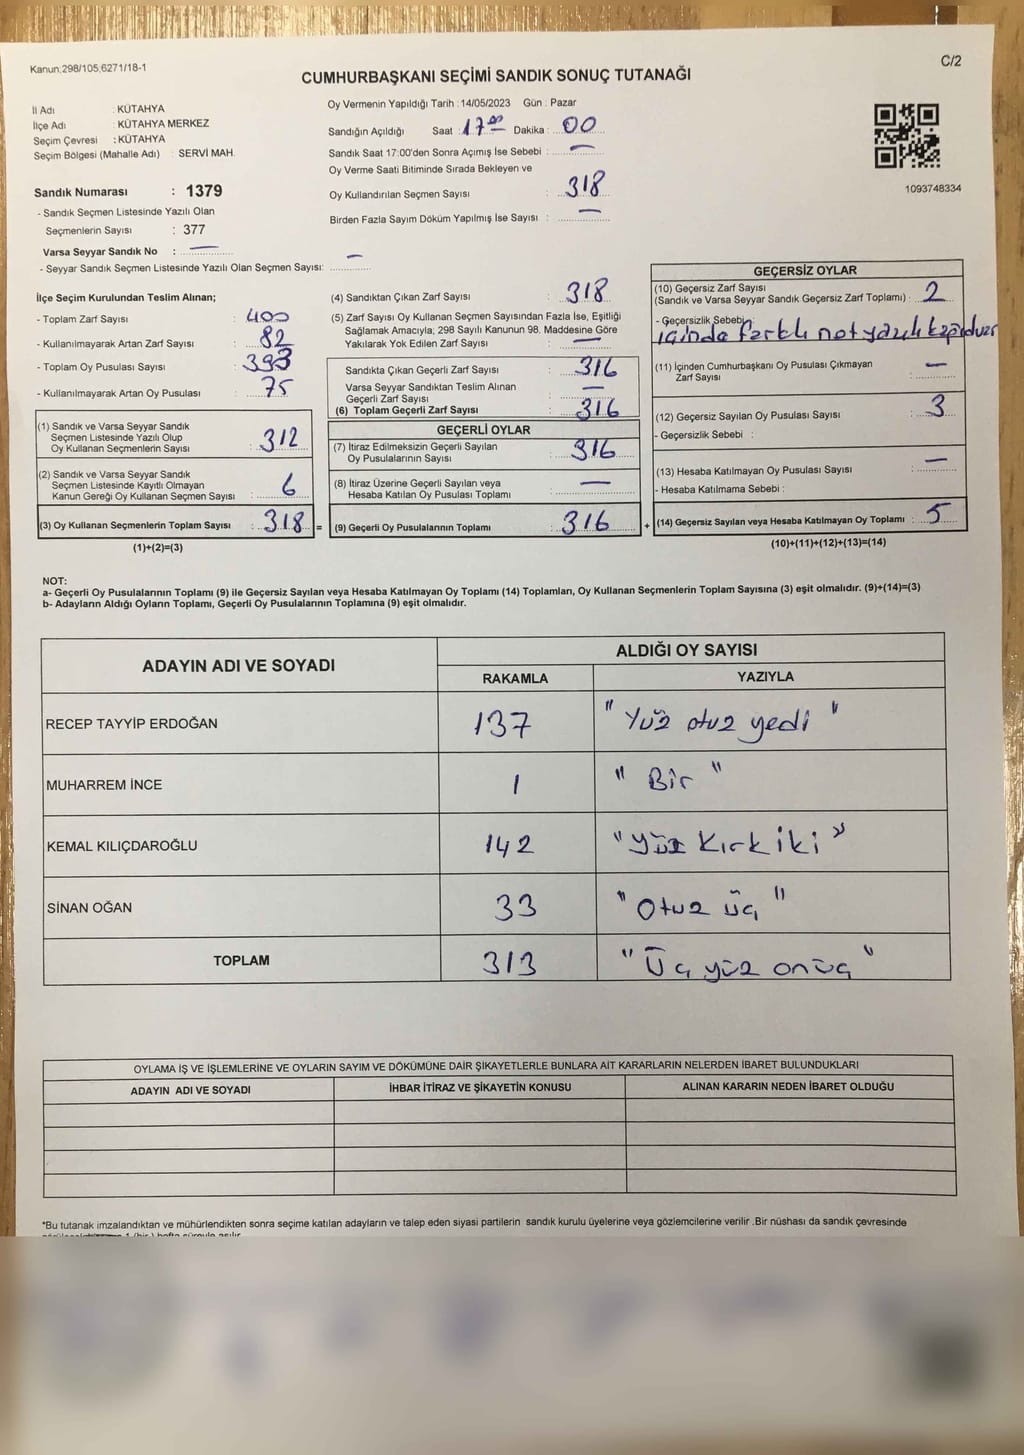 Kanun:298/105,6271/18-1
C/2
CUMHURBAŞKANI SEÇİMİ SANDIK SONUÇ TUTANAĞI
İl Adı : KÜTAHYA
İlçe Adı : KÜTAHYA MERKEZ
Seçim Çevresi : KÜTAHYA
Seçim Bölgesi (Mahalle Adı) : SERVİ MAH.
Sandık Numarası : 1379
- Sandık Seçmen Listesinde Yazılı Olan
Seçmenlerin Sayısı : 377
Varsa Seyyar Sandık No : —
- Seyyar Sandık Seçmen Listesinde Yazılı Olan Seçmen Sayısı: —
Oy Vermenin Yapıldığı Tarih : 14/05/2023 Gün : Pazar
Sandığın Açıldığı Saat : 17 00 Dakika : 00
Sandık Saat 17:00'den Sonra Açımış İse Sebebi : —
Oy Verme Saati Bitiminde Sırada Bekleyen ve
Oy Kullandırılan Seçmen Sayısı : 318
Birden Fazla Sayım Döküm Yapılmış İse Sayısı : —
1093748334
İlçe Seçim Kurulundan Teslim Alınan;
- Toplam Zarf Sayısı : 400
- Kullanılmayarak Artan Zarf Sayısı : 82
- Toplam Oy Pusulası Sayısı : 393
- Kullanılmayarak Artan Oy Pusulası : 75
(1) Sandık ve Varsa Seyyar Sandık
Seçmen Listesinde Yazılı Olup
Oy Kullanan Seçmenlerin Sayısı : 312
(2) Sandık ve Varsa Seyyar Sandık
Seçmen Listesinde Kayıtlı Olmayan
Kanun Gereği Oy Kullanan Seçmen Sayısı : 6
(3) Oy Kullanan Seçmenlerin Toplam Sayısı : 318 =
(1)+(2)=(3)
(4) Sandıktan Çıkan Zarf Sayısı : 318
(5) Zarf Sayısı Oy Kullanan Seçmen Sayısından Fazla İse, Eşitliği
Sağlamak Amacıyla; 298 Sayılı Kanunun 98. Maddesine Göre
Yakılarak Yok Edilen Zarf Sayısı : —
Sandıkta Çıkan Geçerli Zarf Sayısı : 316
Varsa Seyyar Sandıktan Teslim Alınan
Geçerli Zarf Sayısı : —
(6) Toplam Geçerli Zarf Sayısı : 316
GEÇERLİ OYLAR
(7) İtiraz Edilmeksizin Geçerli Sayılan
Oy Pusulalarının Sayısı : 316
(8) İtiraz Üzerine Geçerli Sayılan veya
Hesaba Katılan Oy Pusulası Toplamı : —
(9) Geçerli Oy Pusulalarının Toplamı : 316 +
GEÇERSİZ OYLAR
(10) Geçersiz Zarf Sayısı
(Sandık ve Varsa Seyyar Sandık Geçersiz Zarf Toplamı) : 2
- Geçersizlik Sebebi :
içinde farklı not yazılı
(11) İçinden Cumhurbaşkanı Oy Pusulası Çıkmayan
Zarf Sayısı : —
(12) Geçersiz Sayılan Oy Pusulası Sayısı : 3
- Geçersizlik Sebebi :
(13) Hesaba Katılmayan Oy Pusulası Sayısı : —
- Hesaba Katılmama Sebebi :
(14) Geçersiz Sayılan veya Hesaba Katılmayan Oy Toplamı : 5
(10)+(11)+(12)+(13)=(14)
NOT:
a- Geçerli Oy Pusulalarının Toplamı (9) ile Geçersiz Sayılan veya Hesaba Katılmayan Oy Toplamı (14) Toplamları, Oy Kullanan Seçmenlerin Toplam Sayısına (3) eşit olmalıdır. (9)+(14)=(3)
b- Adayların Aldığı Oyların Toplamı, Geçerli Oy Pusulalarının Toplamına (9) eşit olmalıdır.
ADAYIN ADI VE SOYADI
ALDIĞI OY SAYISI
RAKAMLA YAZIYLA
RECEP TAYYİP ERDOĞAN 137 "Yüz otuz yedi"
MUHARREM İNCE 1 "Bir"
KEMAL KILIÇDAROĞLU 142 "yüz kırk iki"
SİNAN OĞAN 33 "Otuz üç"
TOPLAM 313 "Üç yüz onüç"
OYLAMA İŞ VE İŞLEMLERİNE VE OYLARIN SAYIM VE DÖKÜMÜNE DAİR ŞİKAYETLERLE BUNLARA AİT KARARLARIN NELERDEN İBARET BULUNDUKLARI
ADAYIN ADI VE SOYADI İHBAR İTİRAZ VE ŞİKAYETİN KONUSU ALINAN KARARIN NEDEN İBARET OLDUĞU
*Bu tutanak imzalandıktan ve mühürlendikten sonra seçime katılan adayların ve talep eden siyasi partilerin sandık kurulu üyelerine veya gözlemcilerine verilir .Bir nüshası da sandık çevresinde